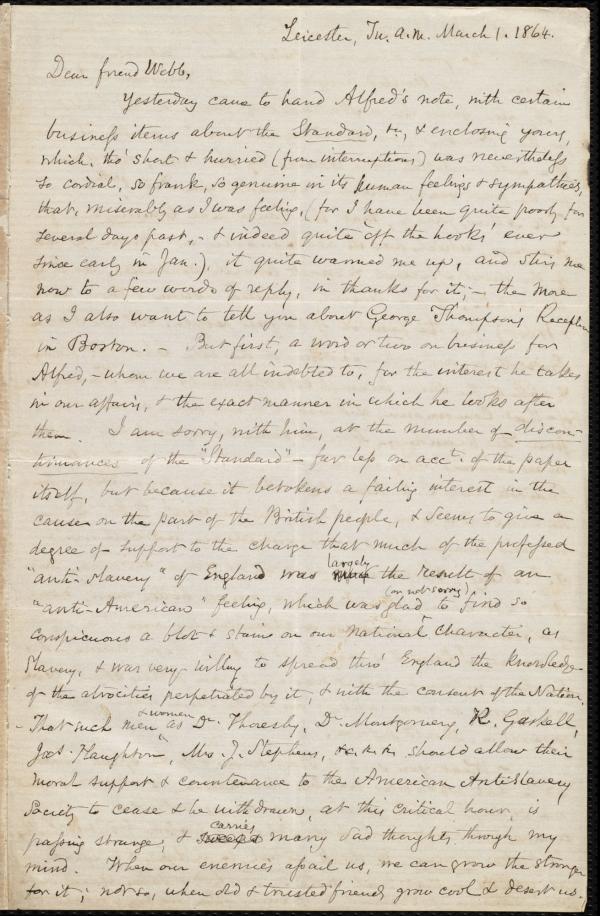 Leicester, Tu. a.m. March 1. 1864.
Dear friend Webb,
Yesterday came to hand Alfred's note, with certain
business items about the Standard, &c., & enclosing yours,
which, tho' short & hurried (from interruptions) was nevertheless
so cordial, so frank, so genuine in its human feelings & sympathies,
that, miserably as I was feeling, (for I have been quite poorly for
several days past, - & indeed quite 'off the hooks' ever
since early in Jan.), it quite warmed me up, and stirs me
now to a few words of reply, in thanks for it; - the more
as I also want to tell you about George Thompson's Reception
in Boston. - But first, a word or two on business for
Alfred, - whom we are all indebted to, for the interest he takes
in our affairs, & the exact manner in which he looks after
them. I am sorry, with him, at the number of discon-
tinuances of the "Standard" - far less on acct. of the paper
itself, but because it betokens a failing interest in the
cause on the part of the British people, & seems to give a
degree of support to the charge that much of the professed
"anti-slavery" of England was largely the result of an
"anti-American" feeling, which was glad (or not sorry) to find so
conspicuous a blot & stain on our National character, as
Slavery, & was very willing to spread thro' England the knowledge
of the atrocities perpetrated by it, & with the consent of the Nation.
- That such men & women as Dr. Thoresby, Dr. Montgomery, R. Gaskell,
Jas. Haughton, Mrs. J. Stephens, &c. &c. should allow their
moral support & countenance to the American Antislavery
Society to cease & be withdrawn, at this critical hour, is
passing strange, & carries many sad thoughts through my
mind. When our enemies assail us, we can grow the stronger
for it; not so, when old & trusted friends grow cool & desert us.